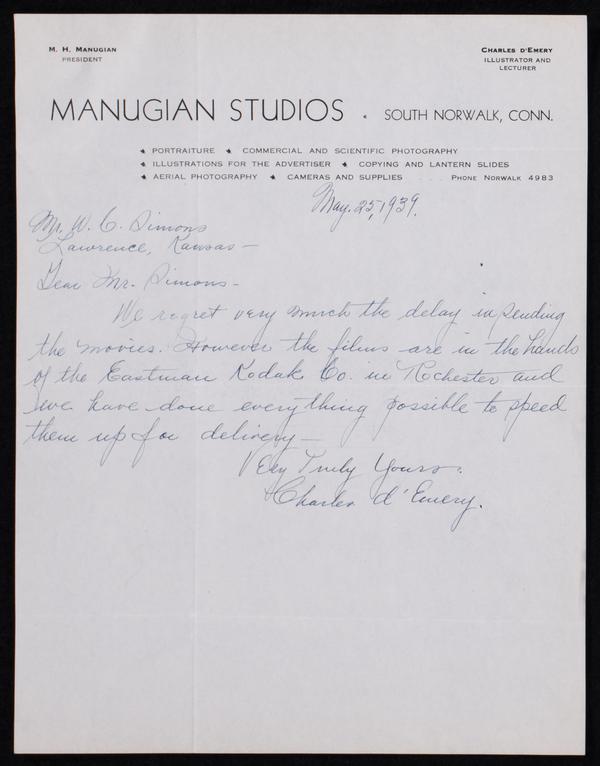 M. H. MANUGIAN
PRESIDENT
CHARLES D'EMERY
ILLUSTRATOR AND
LECTURER
MANUGIAN STUDIOS • SOUTH NORWALK, CONN.
PORTRAITURE COMMERCIAL AND SCIENTIFIC PHOTOGRAPHY
ILLUSTRATIONS FOR THE ADVERTISER COPYING AND LANTERN SLIDES
AERIAL PHOTOGRAPHY CAMERAS AND SUPPLIES . . . PHONE NORWALK 4983
May. 25, 1939.
Mr. W. C. Simons
Lawrence, Kansas —
Dear Mr. Simons -
We regret very much the delay in sending
the movies. However the films are in the hands
of the Eastman Kodak Co. in Rochester and
we have done everything possible to speed
them up for delivery —
Very Truly Yours.
Charles d'Emery.